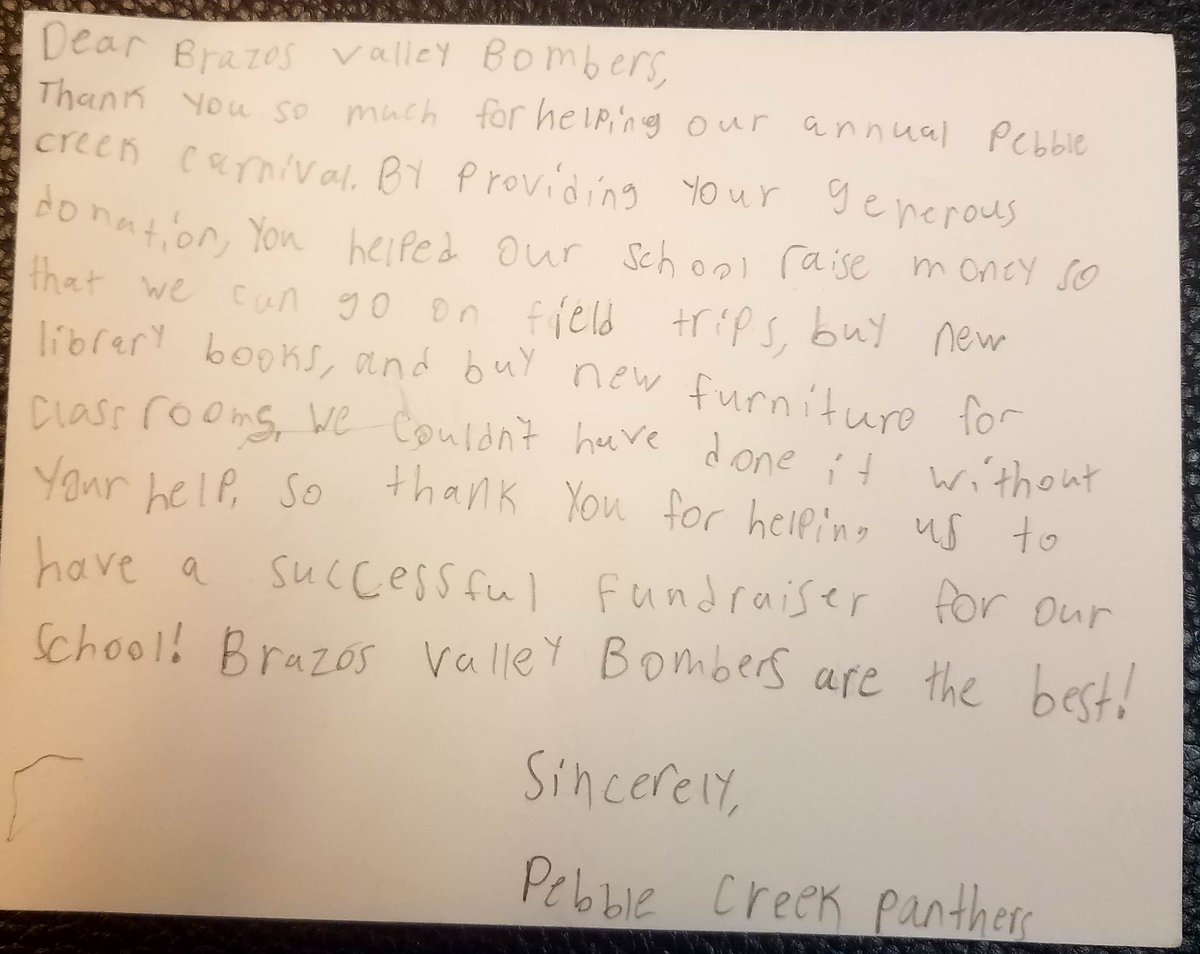 Dear Brazos Valley Bombers,
Thank you so much for helping our annual Pebble
creek carnival. By Providing your generous
donation, you helped our school raise money so
that we can go on field trips, buy new
library books, and buy new furniture for
classrooms. We couldn't have done it without
your help. So thank you for helping us to
have a successful fundraiser for our
school! Brazos Valley Bombers are the best!
Sincerely,
Pebble Creek panthers